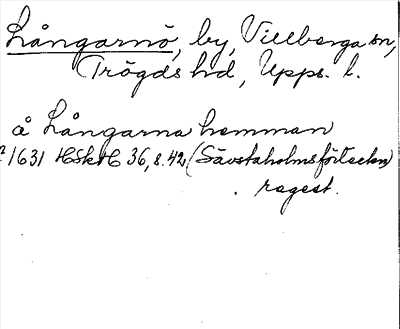 Långarnö, by, Villberga sn,
Trögds hd, Upps. l.
å Långarna hemman
1631 HSkH 36, s. 42, (Sävstaholmsförteckn)
regest.